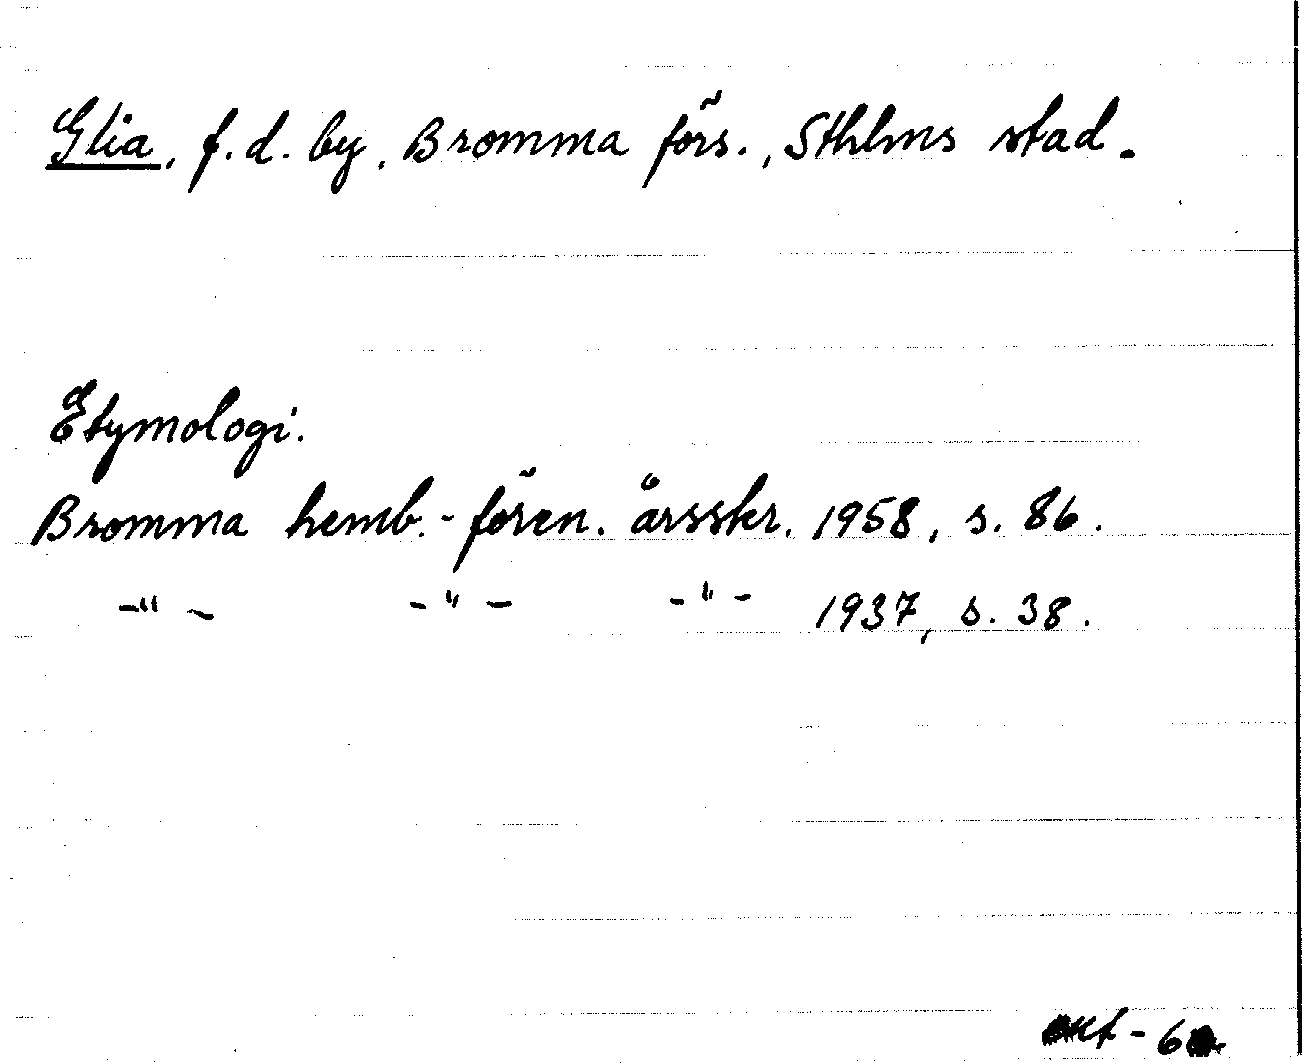 Glia, f.d. by, Bromma förs., Sthlms stad.
Etymologi.
Bromma hemb.-fören. årsskr. 1958, s. 86.
-"- -"- -"- 1937, s. 38.